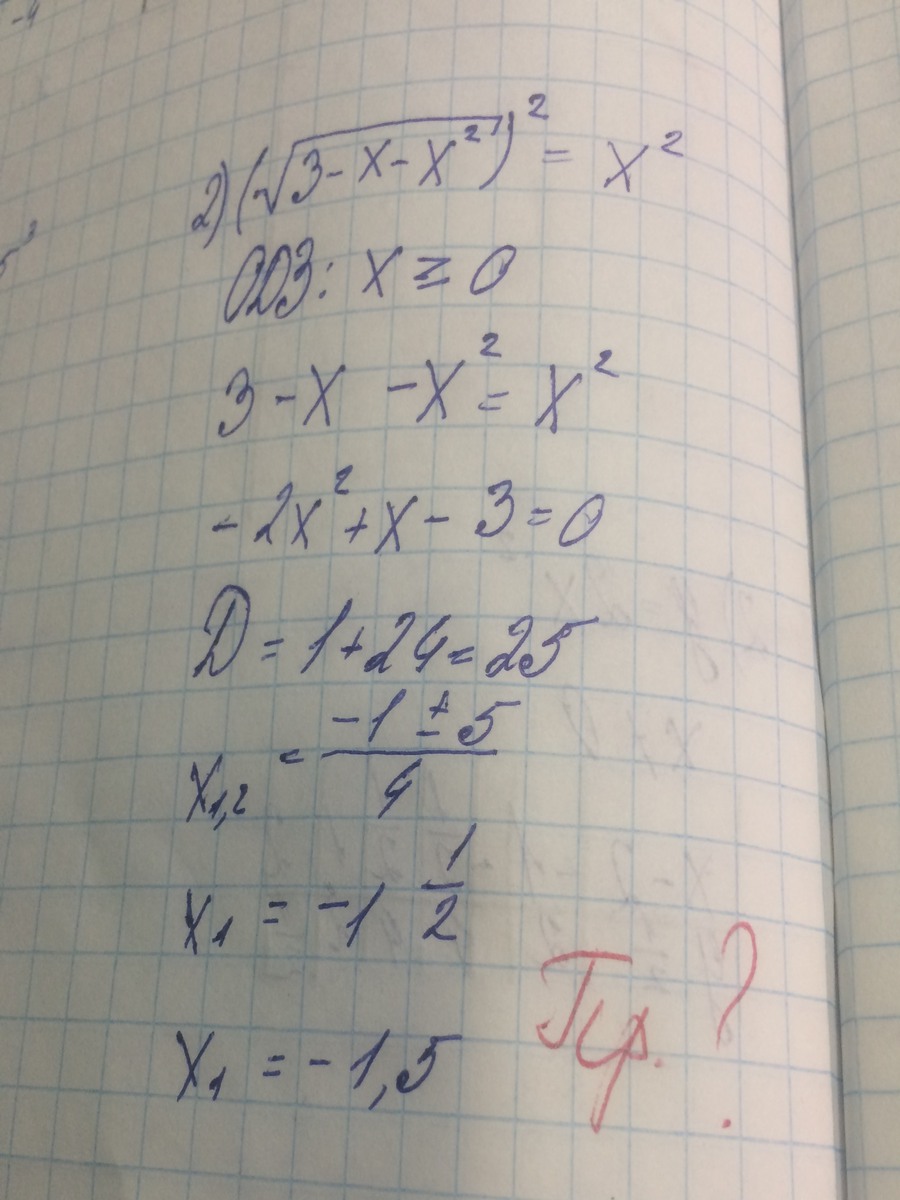 -4
2) (√(3-x-x²))² = x²
ОДЗ: x ≥ 0
3 - x - x² = x²
-2x² + x - 3 = 0
D = 1 + 24 = 25
x₁,₂ = (-1 ± 5)/4
x₁ = -1 1/2
x₁ = -1,5
?